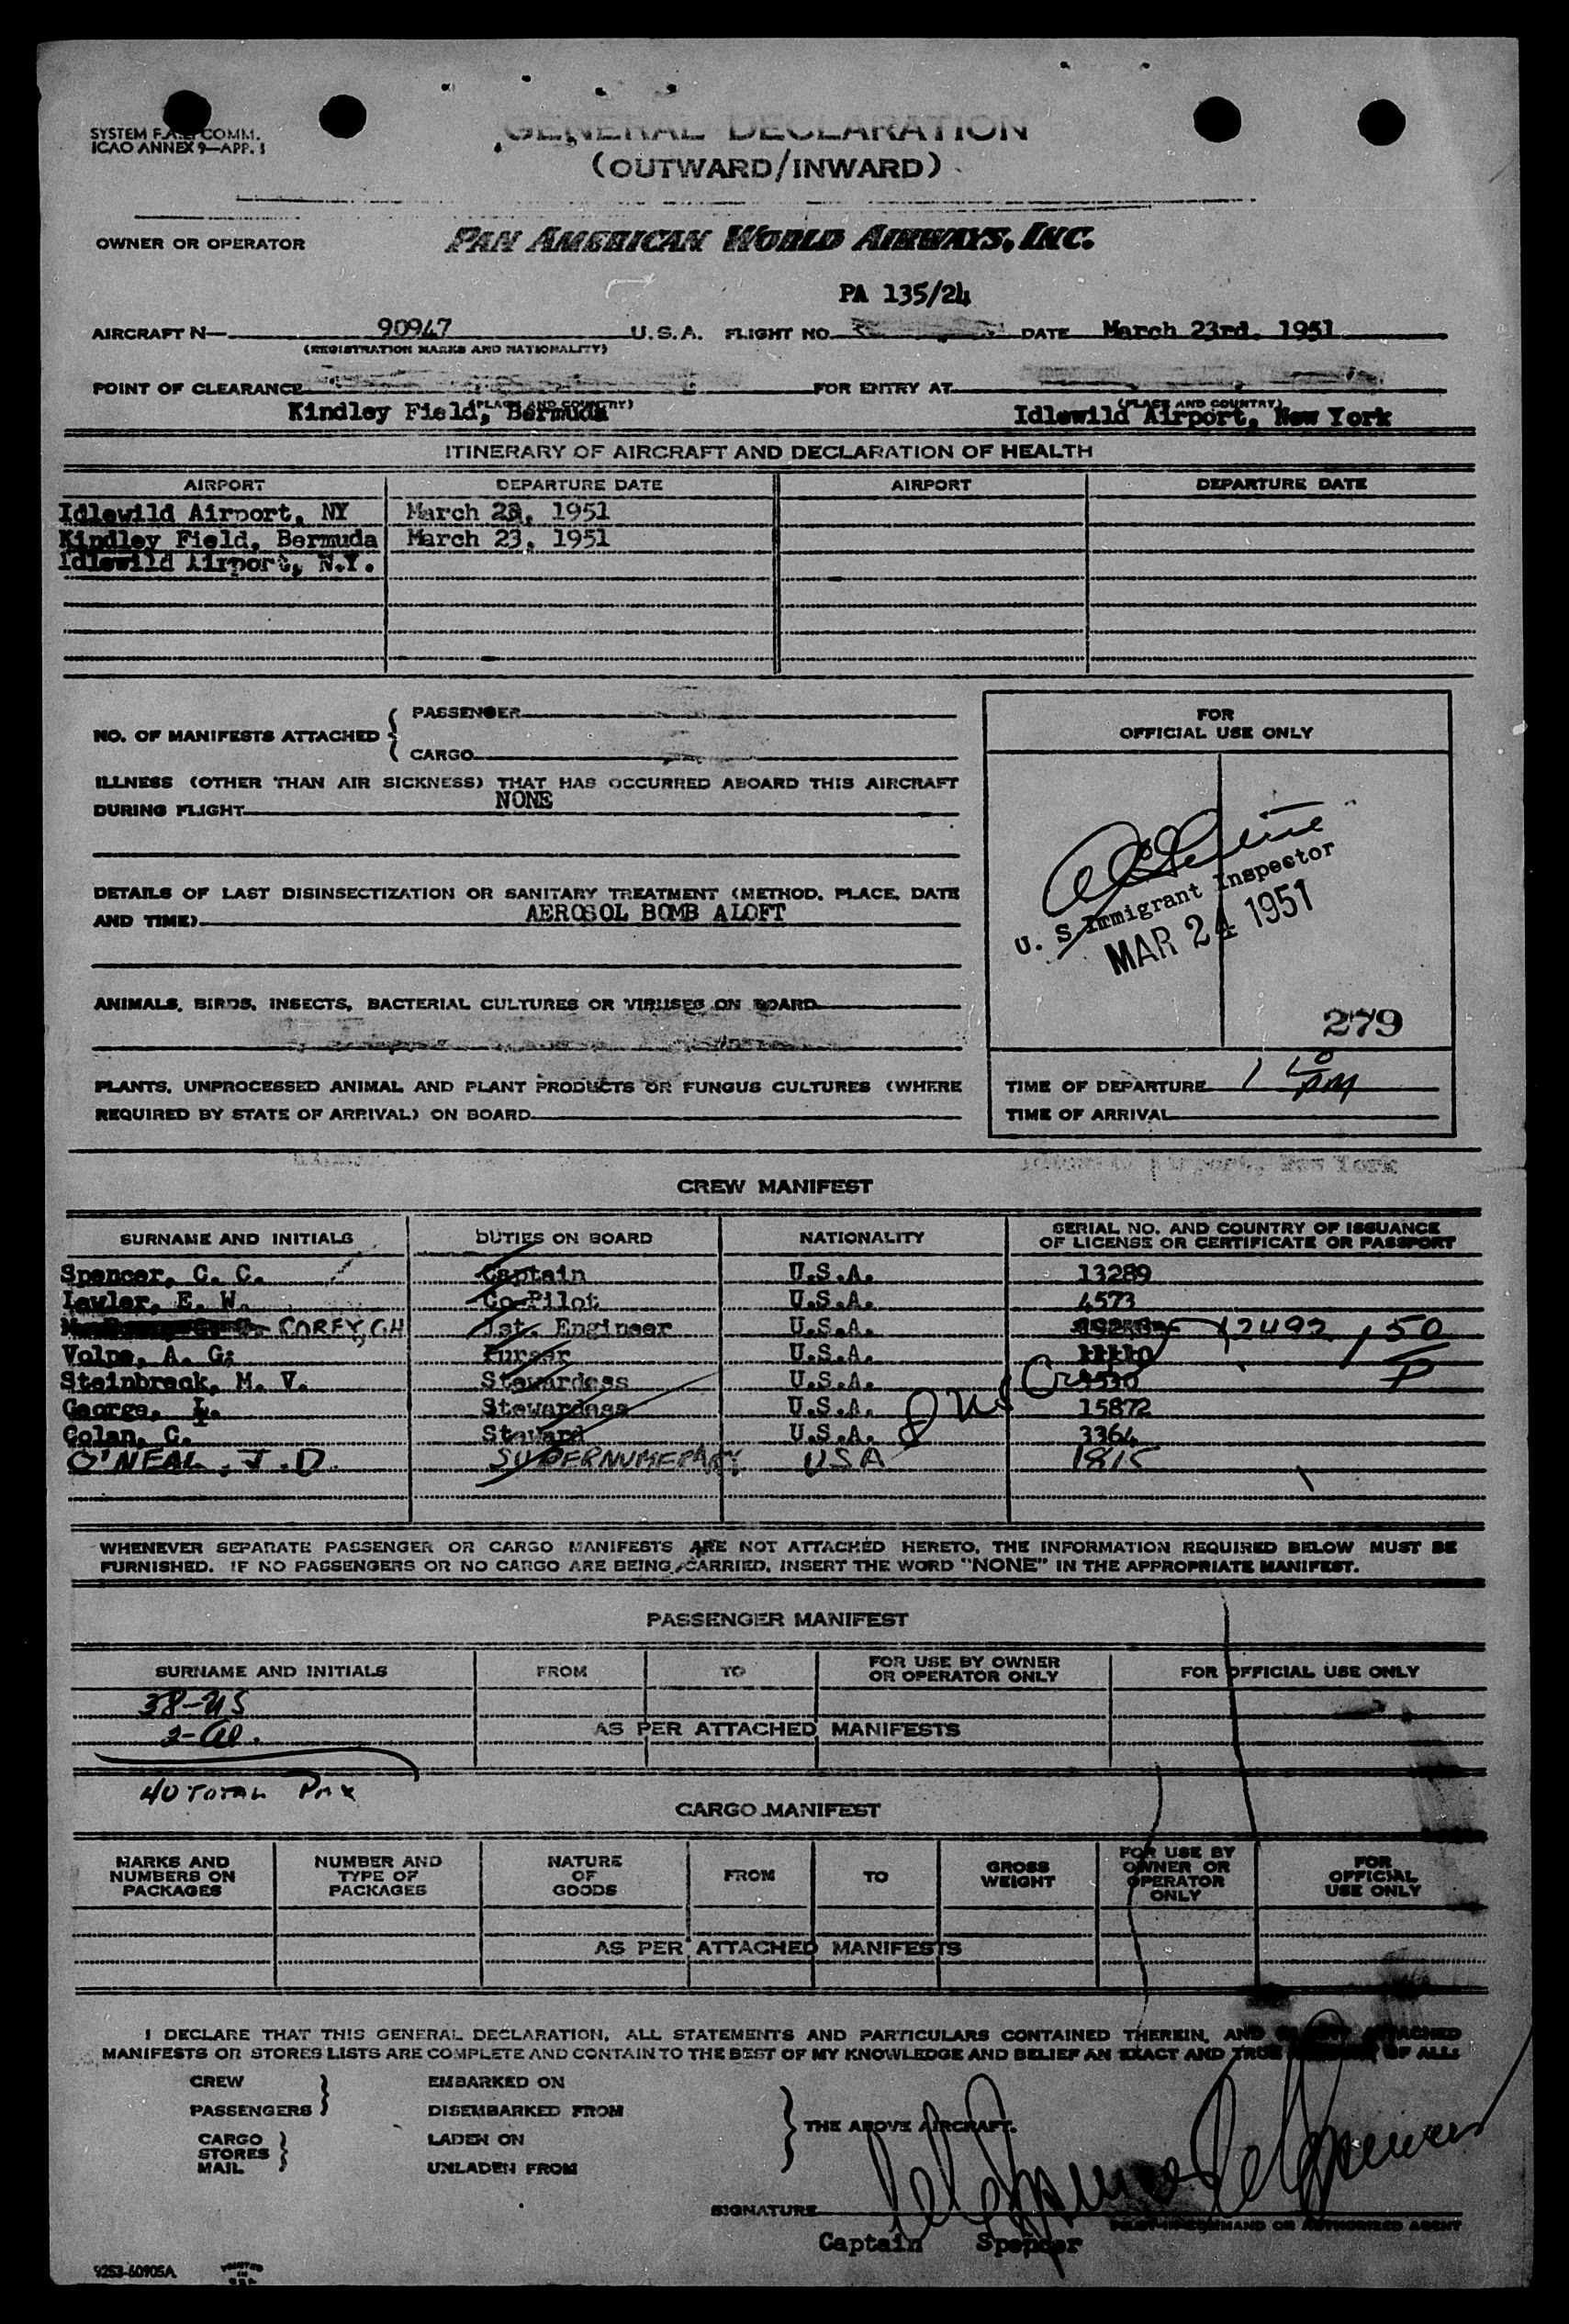 SYSTEM F.A.L. COMM.
ICAO ANNEX 9—APP. 1
GENERAL DECLARATION
(OUTWARD/INWARD)
OWNER OR OPERATOR PAN AMERICAN WORLD AIRWAYS, INC.
PA 135/24
AIRCRAFT N— 90947 U.S.A. FLIGHT NO. DATE March 23rd, 1951
(REGISTRATION MARKS AND NATIONALITY)
POINT OF CLEARANCE FOR ENTRY AT
(PLACE AND COUNTRY) (PLACE AND COUNTRY)
Kindley Field, Bermuda Idlewild Airport, New York
ITINERARY OF AIRCRAFT AND DECLARATION OF HEALTH
AIRPORT DEPARTURE DATE AIRPORT DEPARTURE DATE
Idlewild Airport, NY March 23, 1951
Kindley Field, Bermuda March 23, 1951
Idlewild Airport, N.Y.
NO. OF MANIFESTS ATTACHED { PASSENGER
CARGO
FOR
OFFICIAL USE ONLY
ILLNESS (OTHER THAN AIR SICKNESS) THAT HAS OCCURRED ABOARD THIS AIRCRAFT
DURING FLIGHT NONE
DETAILS OF LAST DISINSECTIZATION OR SANITARY TREATMENT (METHOD, PLACE, DATE
AND TIME) AEROSOL BOMB ALOFT
U. S. Immigrant Inspector
MAR 24 1951
ANIMALS, BIRDS, INSECTS, BACTERIAL CULTURES OR VIRUSES ON BOARD
279
PLANTS, UNPROCESSED ANIMAL AND PLANT PRODUCTS OR FUNGUS CULTURES (WHERE
REQUIRED BY STATE OF ARRIVAL) ON BOARD
TIME OF DEPARTURE PM
TIME OF ARRIVAL
CREW MANIFEST
SURNAME AND INITIALS DUTIES ON BOARD NATIONALITY SERIAL NO. AND COUNTRY OF ISSUANCE
OF LICENSE OR CERTIFICATE OR PASSPORT
Spencer, C. C. Captain U.S.A. 13289
Lawler, E. W. Co-Pilot U.S.A. 4573
COREY, GH 1st. Engineer U.S.A. 12492, 50
Volpe, A. G. Purser U.S.A.
Steinbrack, M. V. Stewardess U.S.A.
George, L. Stewardess U.S.A. 15872
Colan, C. Steward U.S.A. 3364
O'NEAL, J. D. SUPERNUMERARY USA 1815
WHENEVER SEPARATE PASSENGER OR CARGO MANIFESTS ARE NOT ATTACHED HERETO, THE INFORMATION REQUIRED BELOW MUST BE
FURNISHED. IF NO PASSENGERS OR NO CARGO ARE BEING CARRIED, INSERT THE WORD "NONE" IN THE APPROPRIATE MANIFEST.
PASSENGER MANIFEST
SURNAME AND INITIALS FROM TO FOR USE BY OWNER
OR OPERATOR ONLY FOR OFFICIAL USE ONLY
38-US
2-al.
AS PER ATTACHED MANIFESTS
40 TOTAL PAX
CARGO MANIFEST
MARKS AND
NUMBERS ON
PACKAGES
NUMBER AND
TYPE OF
PACKAGES
NATURE
OF
GOODS
FROM
TO
GROSS
WEIGHT
FOR USE BY
OWNER OR
OPERATOR
ONLY
FOR
OFFICIAL
USE ONLY
AS PER ATTACHED MANIFESTS
I DECLARE THAT THIS GENERAL DECLARATION, ALL STATEMENTS AND PARTICULARS CONTAINED THEREIN, AND ATTACHED
MANIFESTS OR STORES LISTS ARE COMPLETE AND CONTAIN TO THE BEST OF MY KNOWLEDGE AND BELIEF AN EXACT AND TRUE OF ALL:
CREW EMBARKED ON
PASSENGERS DISEMBARKED FROM
THE ABOVE AIRCRAFT.
CARGO LADEN ON
STORES
MAIL UNLADEN FROM
SIGNATURE
PILOT-IN-COMMAND OR AUTHORIZED AGENT
Captain Spencer
9253-60905A
PRINTED
IN
U.S.A.